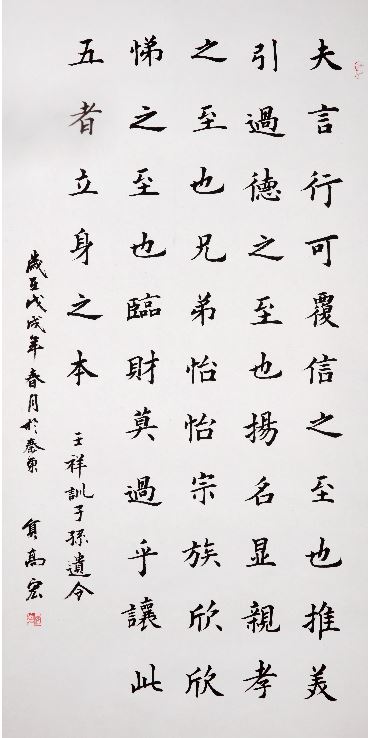 夫言行可覆信之至也推美
引過德之至也揚名顯親孝
之至也兄弟怡怡宗族欣欣
悌之至也臨財莫過乎讓此
五者立身之本
王祥訓子孫遺令
歲在戊戌年春月於秦東
負高宏